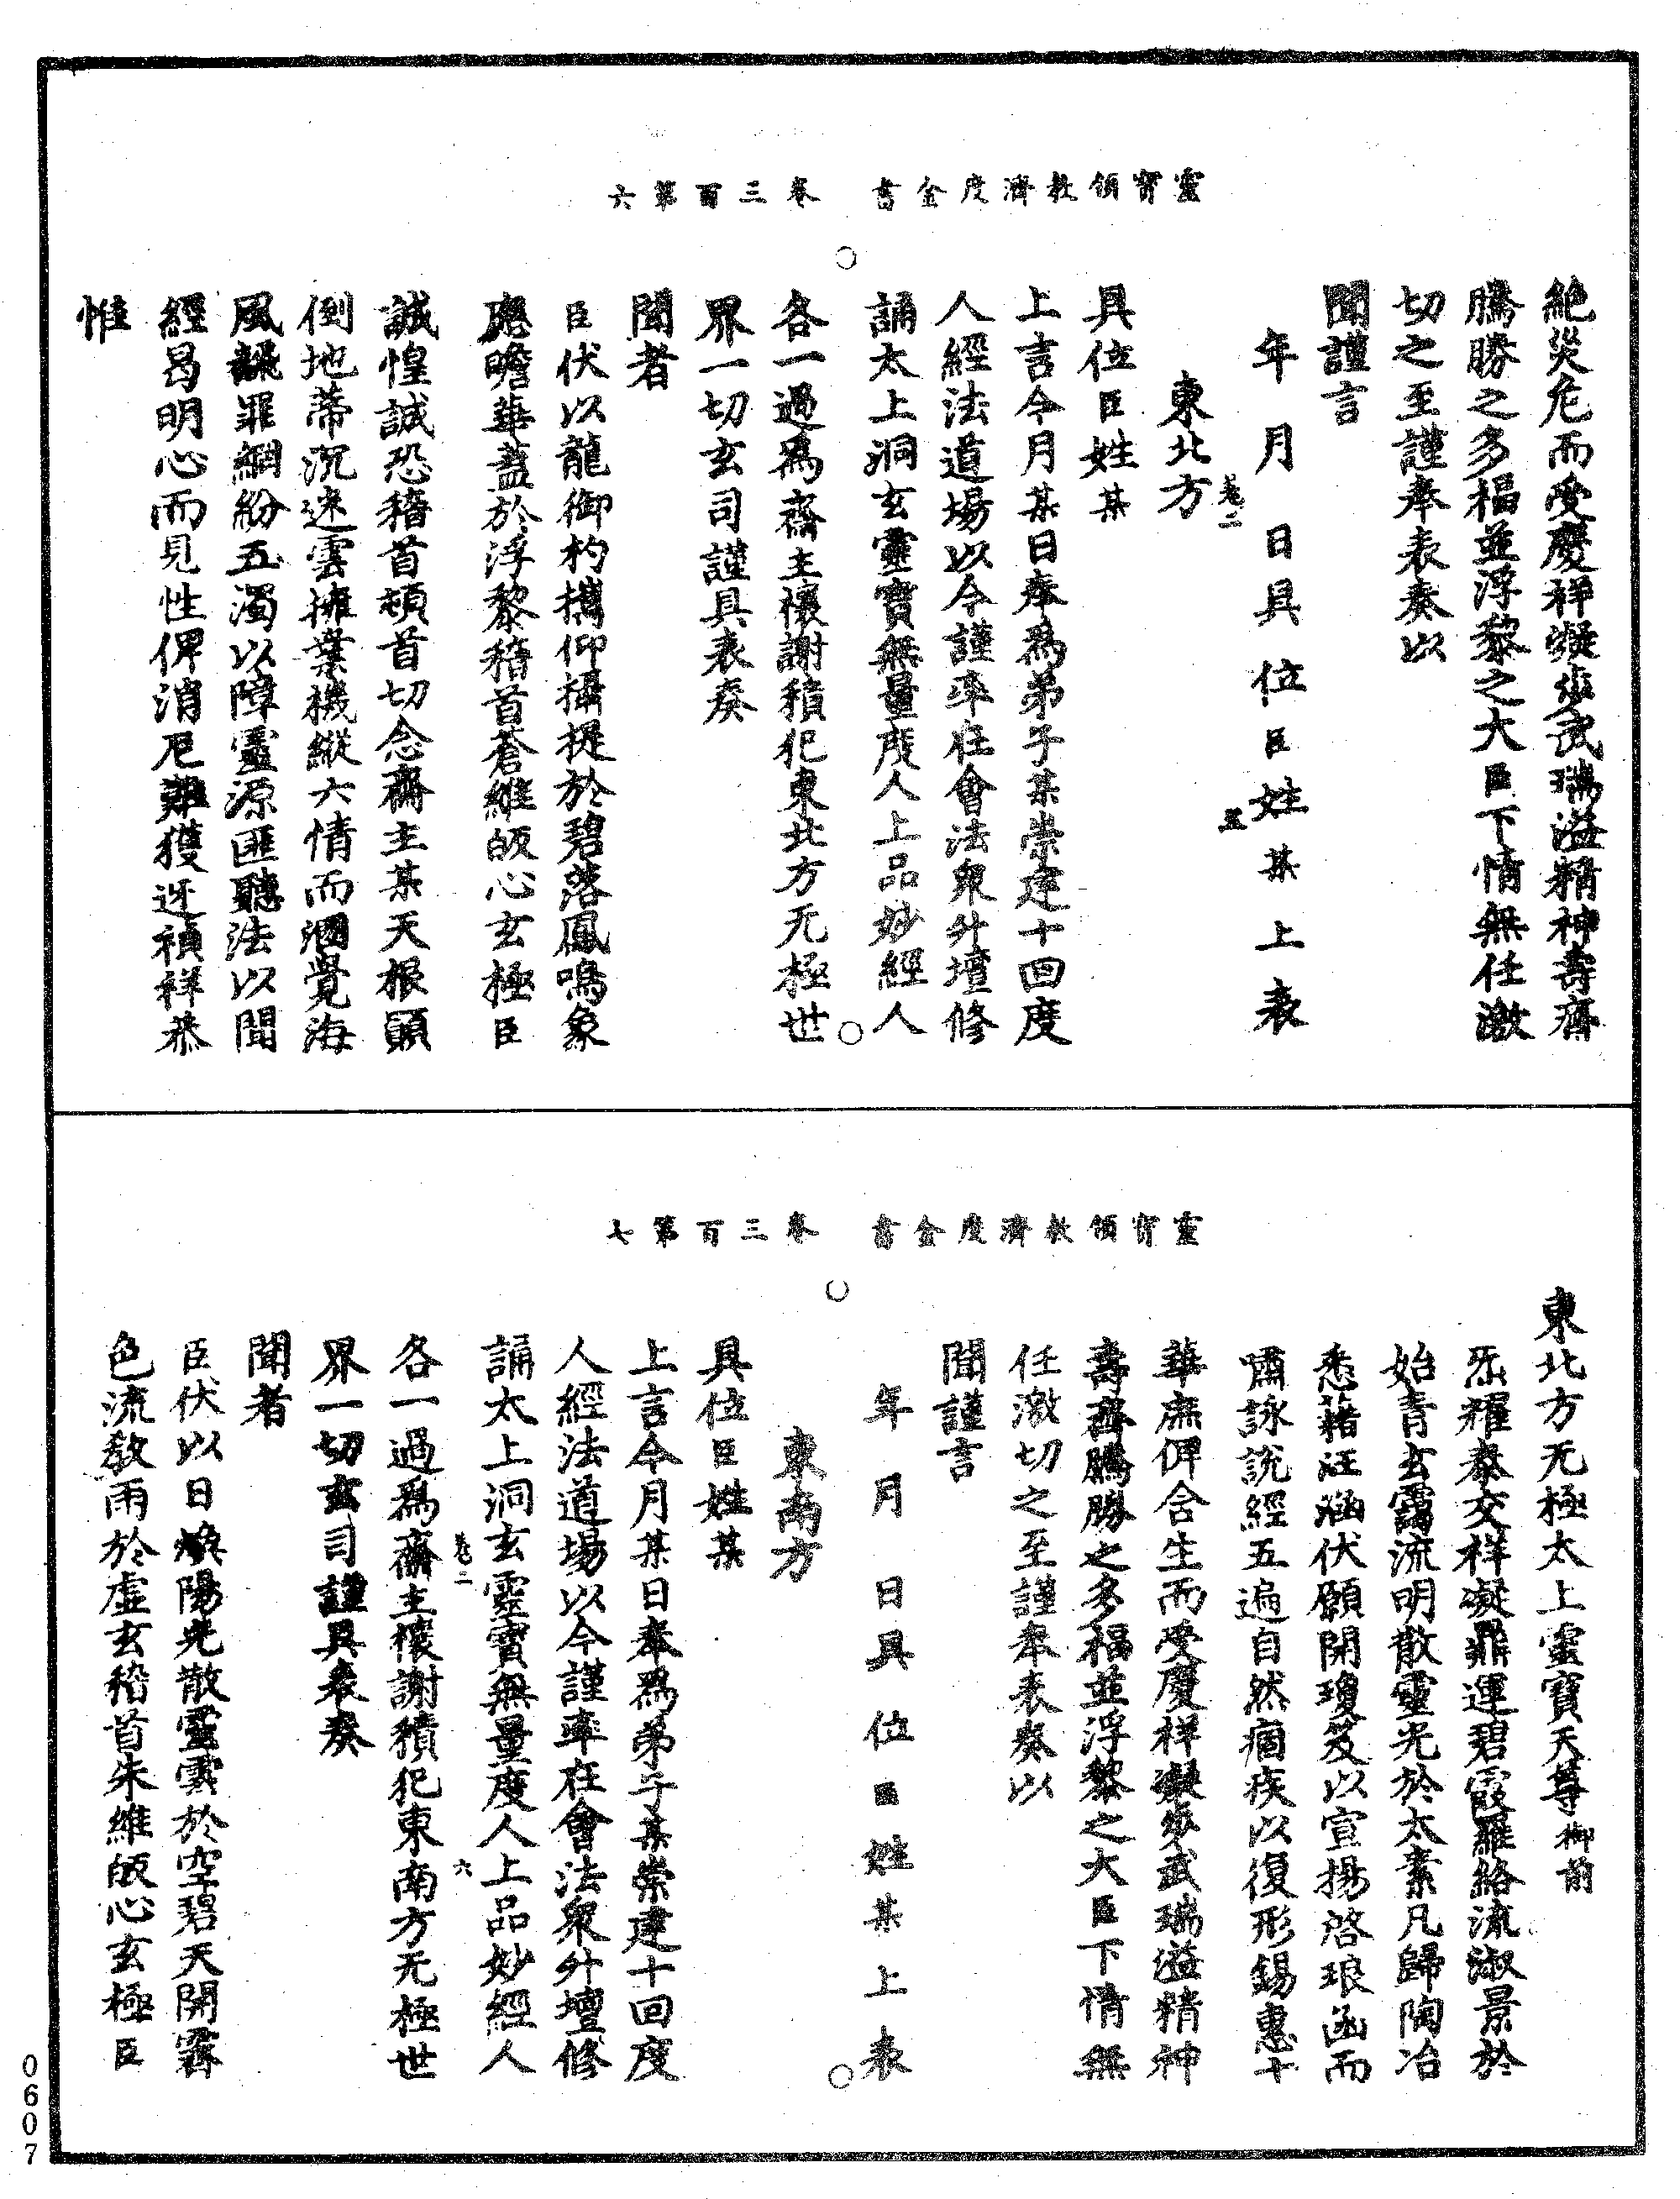 靈寶領教濟度金書 卷三百第六
絕災危而受慶祥凝步武瑞溢精神壽齊
騰勝之多福並浮黎之大臣下情無任激
切之至謹奉表奏以
聞謹言
年 月 日具 位臣姓某上表
卷二 五
東北方
具位臣姓某
上言今月某日奉為弟子某崇建十回度
人經法道場以今謹率在會法衆升壇修
誦太上洞玄靈寶無量度人上品妙經人
各一過為齋主懷謝積犯東北方无極世
界一切玄司謹具表奏
聞者
臣伏以龍御杓攜仰攝提於碧落鳳鳴象
應瞻華蓋於浮黎稽首蒼維皈心玄極臣
誠惶誠恐稽首頓首切念齋主某天根顛
倒地蒂沉迷雲擁業機縱六情而涸覺海
風飜罪網紛五濁以障靈源匪聽法以聞
經曷明心而見性俾消厄難獲迓禎祥恭
惟
靈寶領教濟度金書 卷三百第七
東北方无極太上靈寶天尊御前
炁耀泰交祥凝鼎運碧霞羅絡流淑景於
始青玄靄流明散靈光於太素凡歸陶冶
悉藉汪涵伏願開瓊笈以宣揚啓琅函而
嘯詠說經五遍自然痼疾以復形錫惠十
華庶俾含生而受慶祥凝步武瑞溢精神
壽齊騰勝之多福並浮黎之大臣下情無
任激切之至謹奉表奏以
聞謹言
年 月 日具 位 臣 姓某上表
東南方
具位臣姓某
上言今月某日奉為弟子某崇建十回度
人經法道場以今謹率在會法衆升壇修
誦太上洞玄靈寶無量度人上品妙經人
卷二 六
各一過為齋主懷謝積犯東南方无極世
界一切玄司謹具表奏
聞者
臣伏以日煥陽光散靈雲於空碧天開霽
色流教雨於虛玄稽首朱維皈心玄極臣
0607